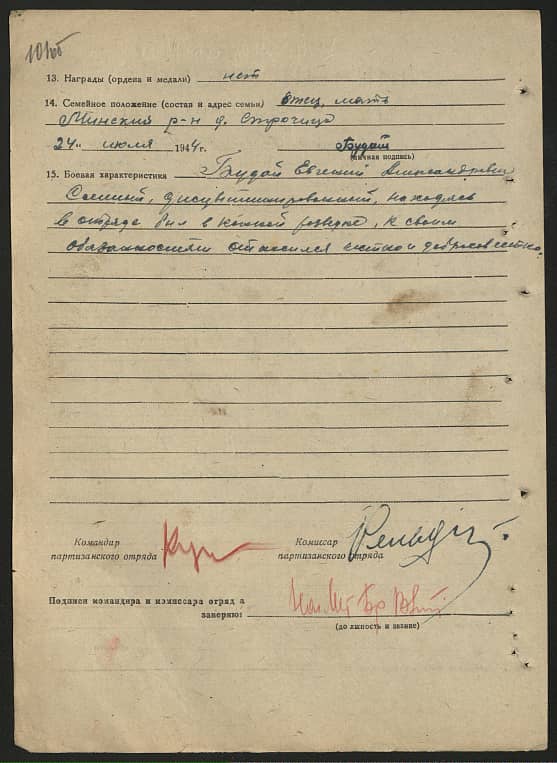 101об
13. Награды (ордена и медали) нет
14. Семейное положение (состав и адрес семьи) Отец, мать
Минский р-н д. Строчица
"24" июля 1944г. Будай
(личная подпись)
15. Боевая характеристика Будай Евгений Александрович
Смелый, дисциплинированный, находясь
в отряде был в конной разведке, к своим
обязанностям относился честно и добросовестно.
Командир Комиссар
партизанского отряда партизанского отряда
Подписи командира и комиссара отряда
заверяю:
(должность и звание)